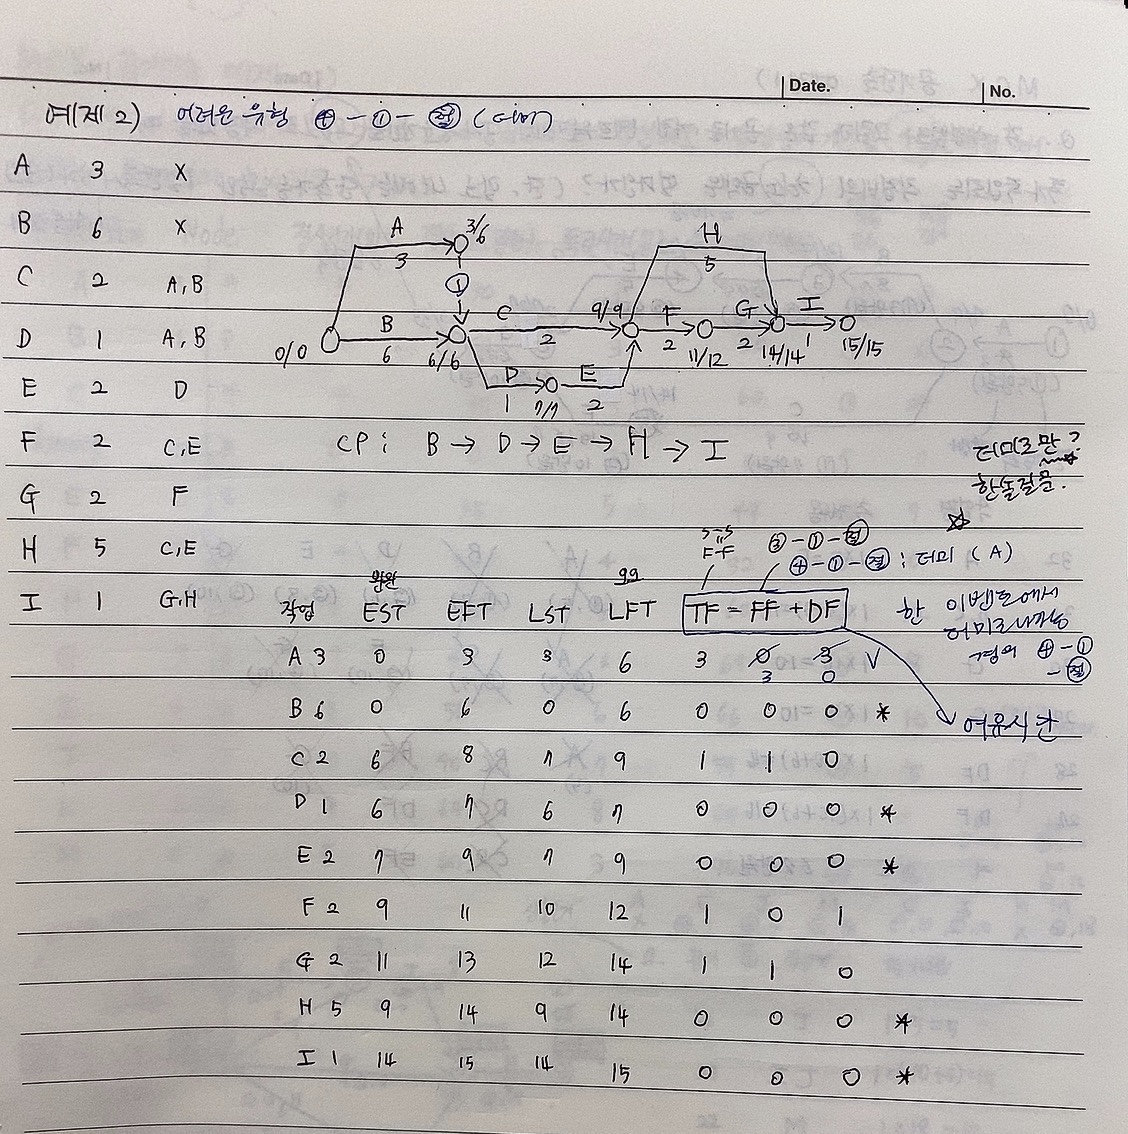 Date. No.
예제 2) 어려운 유형 ㊉-①-㉠ (더미)
A 3 X
B 6 X
C 2 A,B
D 1 A,B
E 2 D
F 2 C,E
G 2 F
H 5 C,E
I 1 G,H
A 3 3/6
①
H 5
0/0 B 6 6/6 C 2 9/9 F 2 11/12 G 2 14/14 I 1 15/15
D 1 7/7 E 2
CP: B → D → E → H → I
더미로만?
한놈질문.
F-F ③-①-㉢
㊉-①-㉢: 더미 (A)
작업 EST EFT LST LFT TF = FF + DF
한 이벤트에서
더미로
경의 ㊉-①
여유시간
A 3 0 3 3 6 3 0 3 V
3 0
B 6 0 6 0 6 0 0 0 *
C 2 6 8 7 9 1 1 0
D 1 6 7 6 7 0 0 0 *
E 2 7 9 7 9 0 0 0 *
F 2 9 11 10 12 1 0 1
G 2 11 13 12 14 1 1 0
H 5 9 14 9 14 0 0 0 *
I 1 14 15 14 15 0 0 0 *